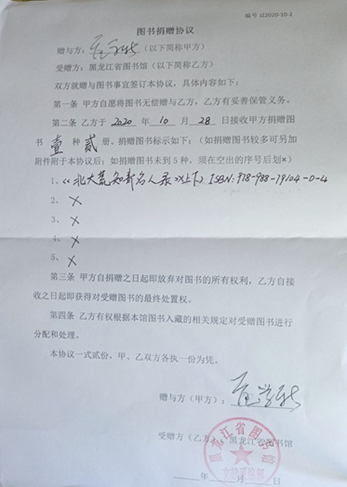 编号 HZ2020-10-1
图书捐赠协议
赠与方：（以下简称甲方）
受赠方：黑龙江省图书馆（以下简称乙方）
双方就赠与图书事宜签订本协议，具体内容如下：
第一条 甲方自愿将图书无偿赠与乙方，乙方有妥善保管义务。
第二条 乙方于 2020 年 10 月 28 日接收甲方捐赠图
书 壹 种 贰 册。捐赠图书标示如下：（如捐赠图书较多可另加
附件附于本协议后；如捐赠图书未到 5 种，须在空出的序号后划×）
1、《北大荒知青名人录》（上下）ISBN：978-988-19104-0-4
2、×
3、×
4、×
5、×
第三条 甲方自捐赠之日起即放弃对图书的所有权利，乙方自接
收之日起即获得对受赠图书的最终处置权。
第四条 乙方有权根据本馆图书入藏的相关规定对受赠图书进行
分配和处理。
本协议一式贰份，甲、乙双方各执一份为凭。
赠与方（甲方）：
受赠方（乙方）：黑龙江省图书馆
黑龙江省图书馆
年 月 日